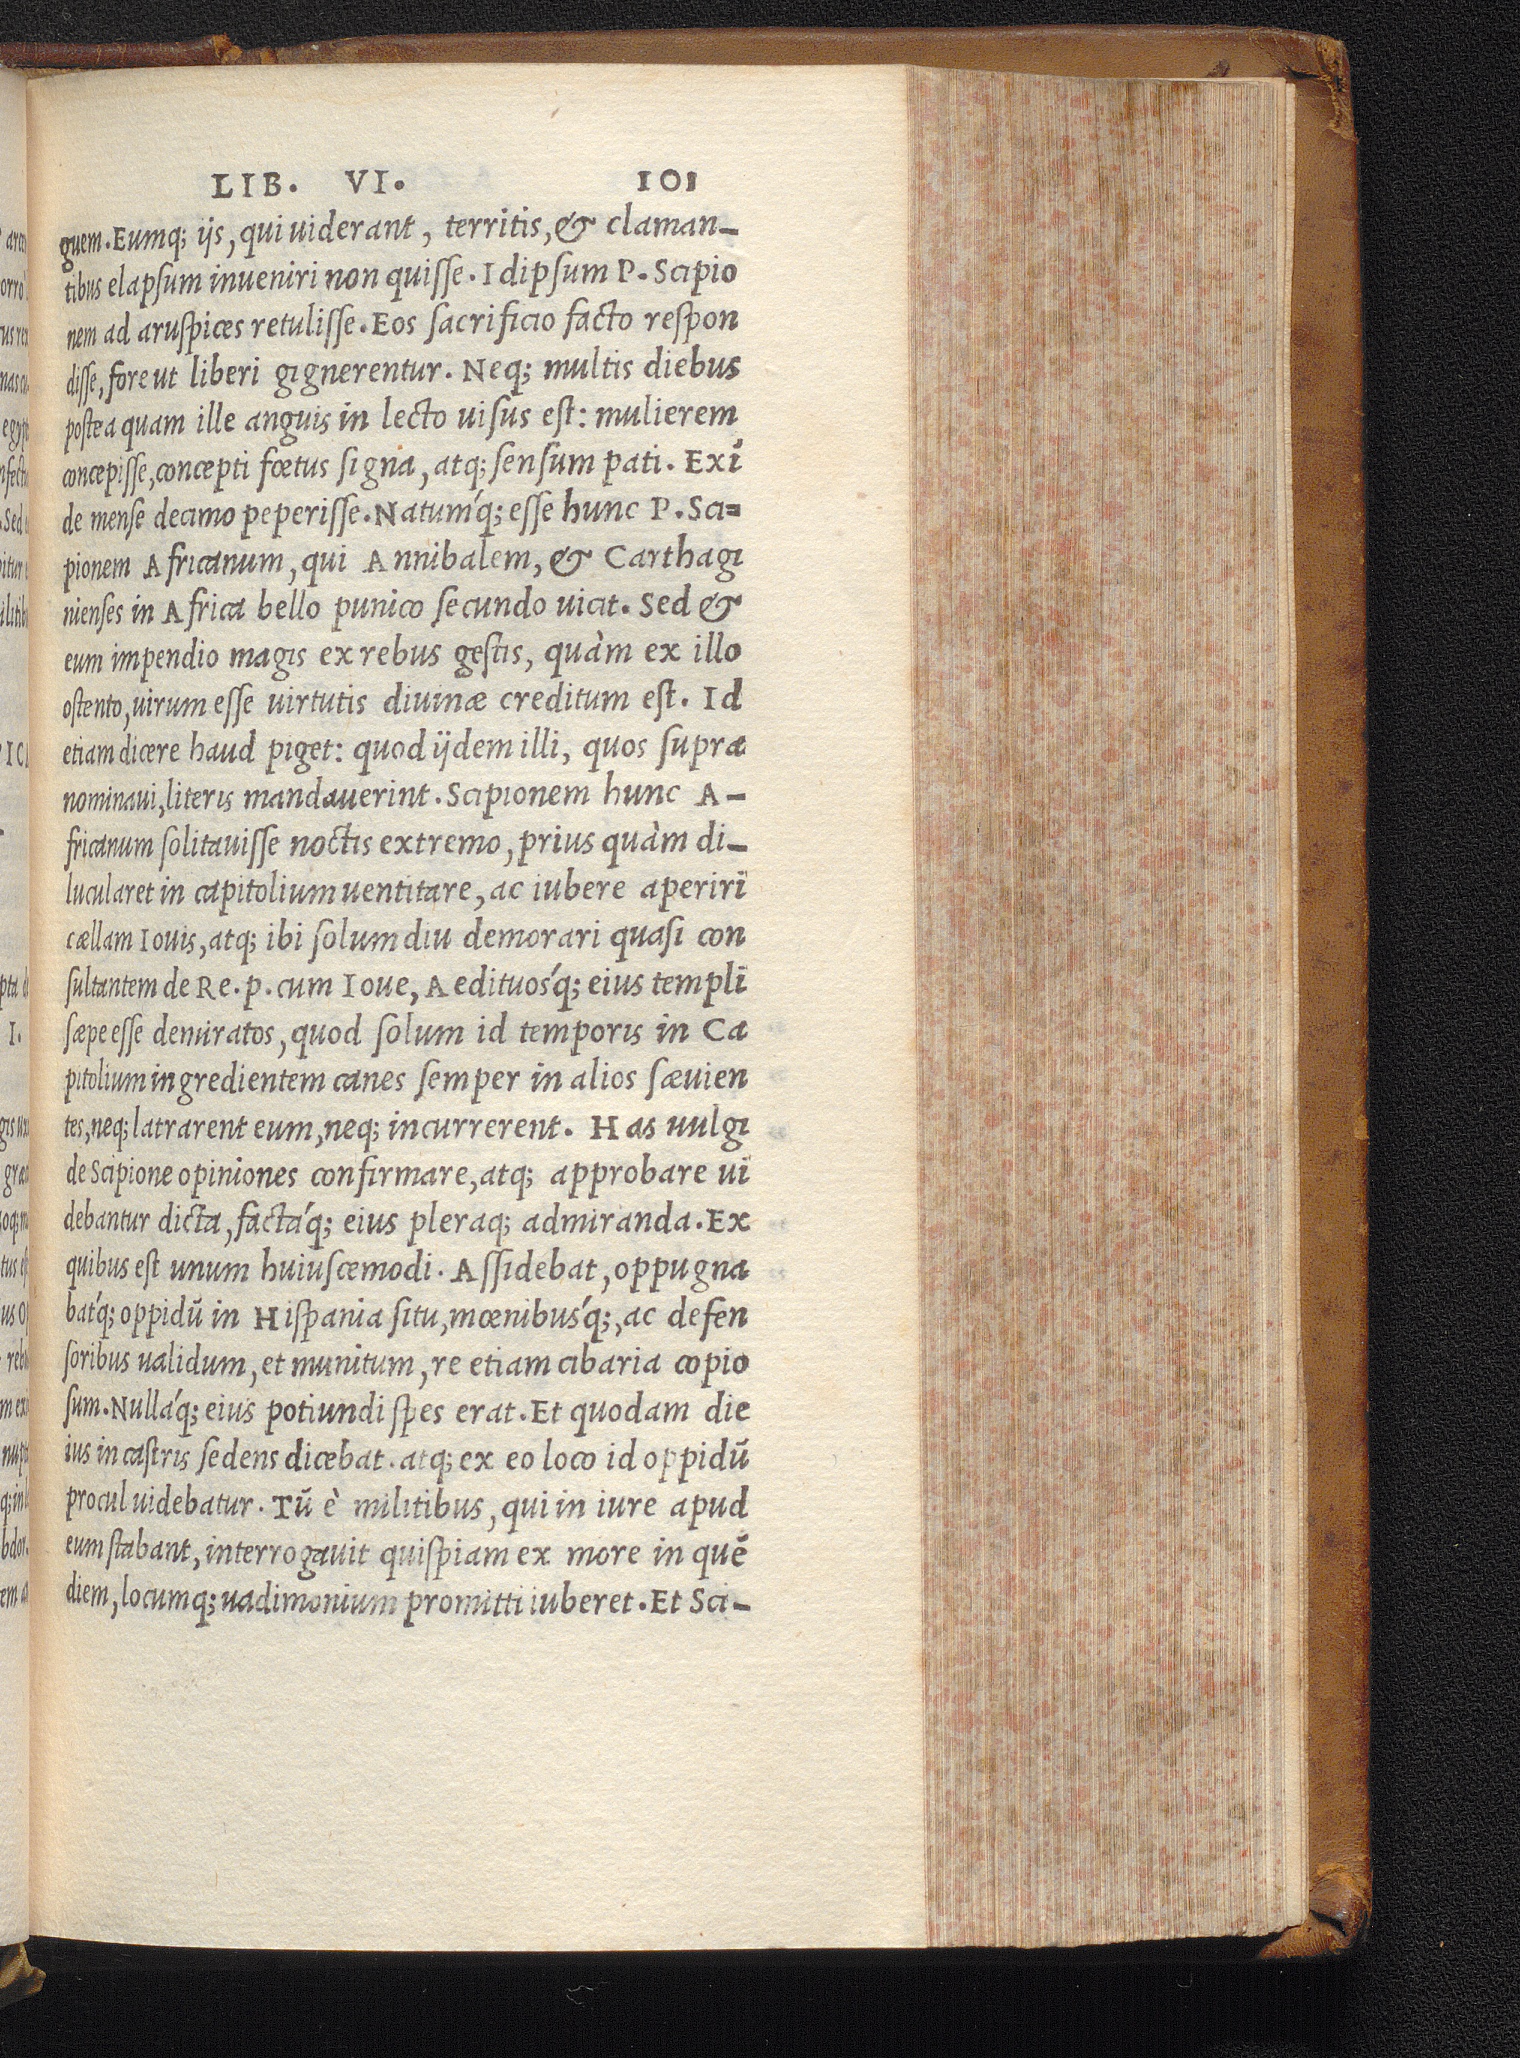 LIB. VI. 101
guem. Eumq; ijs, qui uiderant, territis, & claman-
tibus elapsum inueniri non quisse. Idipsum P. Scipio
nem ad aruspices retulisse. Eos sacrificio facto respon
disse, fore ut liberi gignerentur. Neq; multis diebus
postea quam ille anguis in lecto uisus est: mulierem
concepisse, concepti fœtus signa, atq; sensum pati. Exĩ
de mense decimo peperisse. Natum´q; esse hunc P. Sci=
pionem Africanum, qui Annibalem, & Carthagi
nienses in Africa bello punico secundo uicit. Sed &
eum impendio magis ex rebus gestis, quàm ex illo
ostento, uirum esse uirtutis diuinæ creditum est. Id
etiam dicere haud piget: quod ijdem illi, quos supra
nominaui, literis mandauerint. Scipionem hunc A-
fricanum solitauisse noctis extremo, prius quàm di-
lucularet in capitolium uentitare, ac iubere aperiri
cællam Iouis, atq; ibi solum diu demorari quasi con
sultantem de Re. p. cum Ioue, Aedituos´q; eius templi
sæpe esse demiratos, quod solum id temporis in Ca
pitolium ingredientem canes semper in alios sæuien
tes, neq; latrarent eum, neq; incurrerent. Has uulgi
de Scipione opiniones confirmare, atq; approbare ui
debantur dicta, facta´q; eius pleraq; admiranda. Ex
quibus est unum huiuscemodi. Assidebat, oppugna
bat´q; oppidũ in Hispania situ, mœnibus´q;, ac defen
soribus ualidum, et munitum, re etiam cibaria copio
sum. Nulla´q; eius potiundi spes erat. Et quodam die
ius in castris sedens dicebat. atq; ex eo loco id oppidũ
procul uidebatur. Tũ è militibus, qui in iure apud
eum stabant, interrogauit quispiam ex more in quẽ
diem, locumq; uadimonium promitti iuberet. Et Sci-